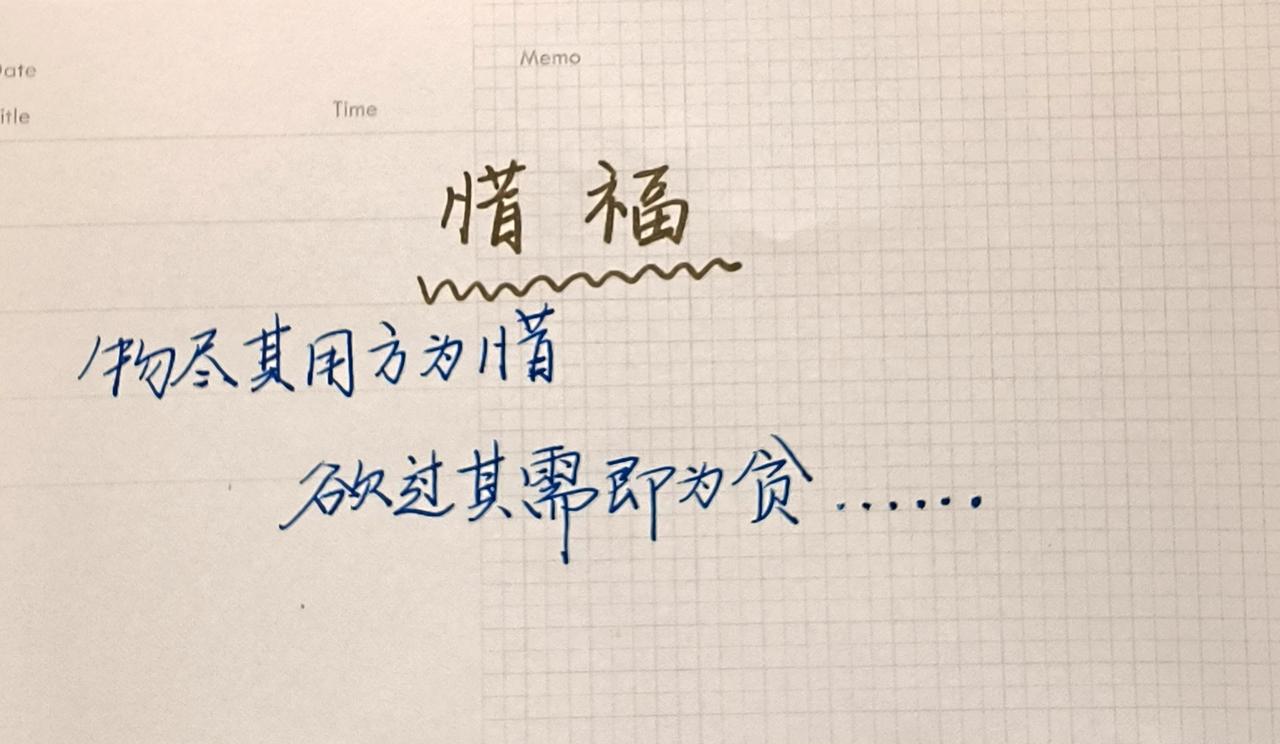 Date
Memo
Title
Time
惜福
物尽其用方为惜
欲过其需即为贪......